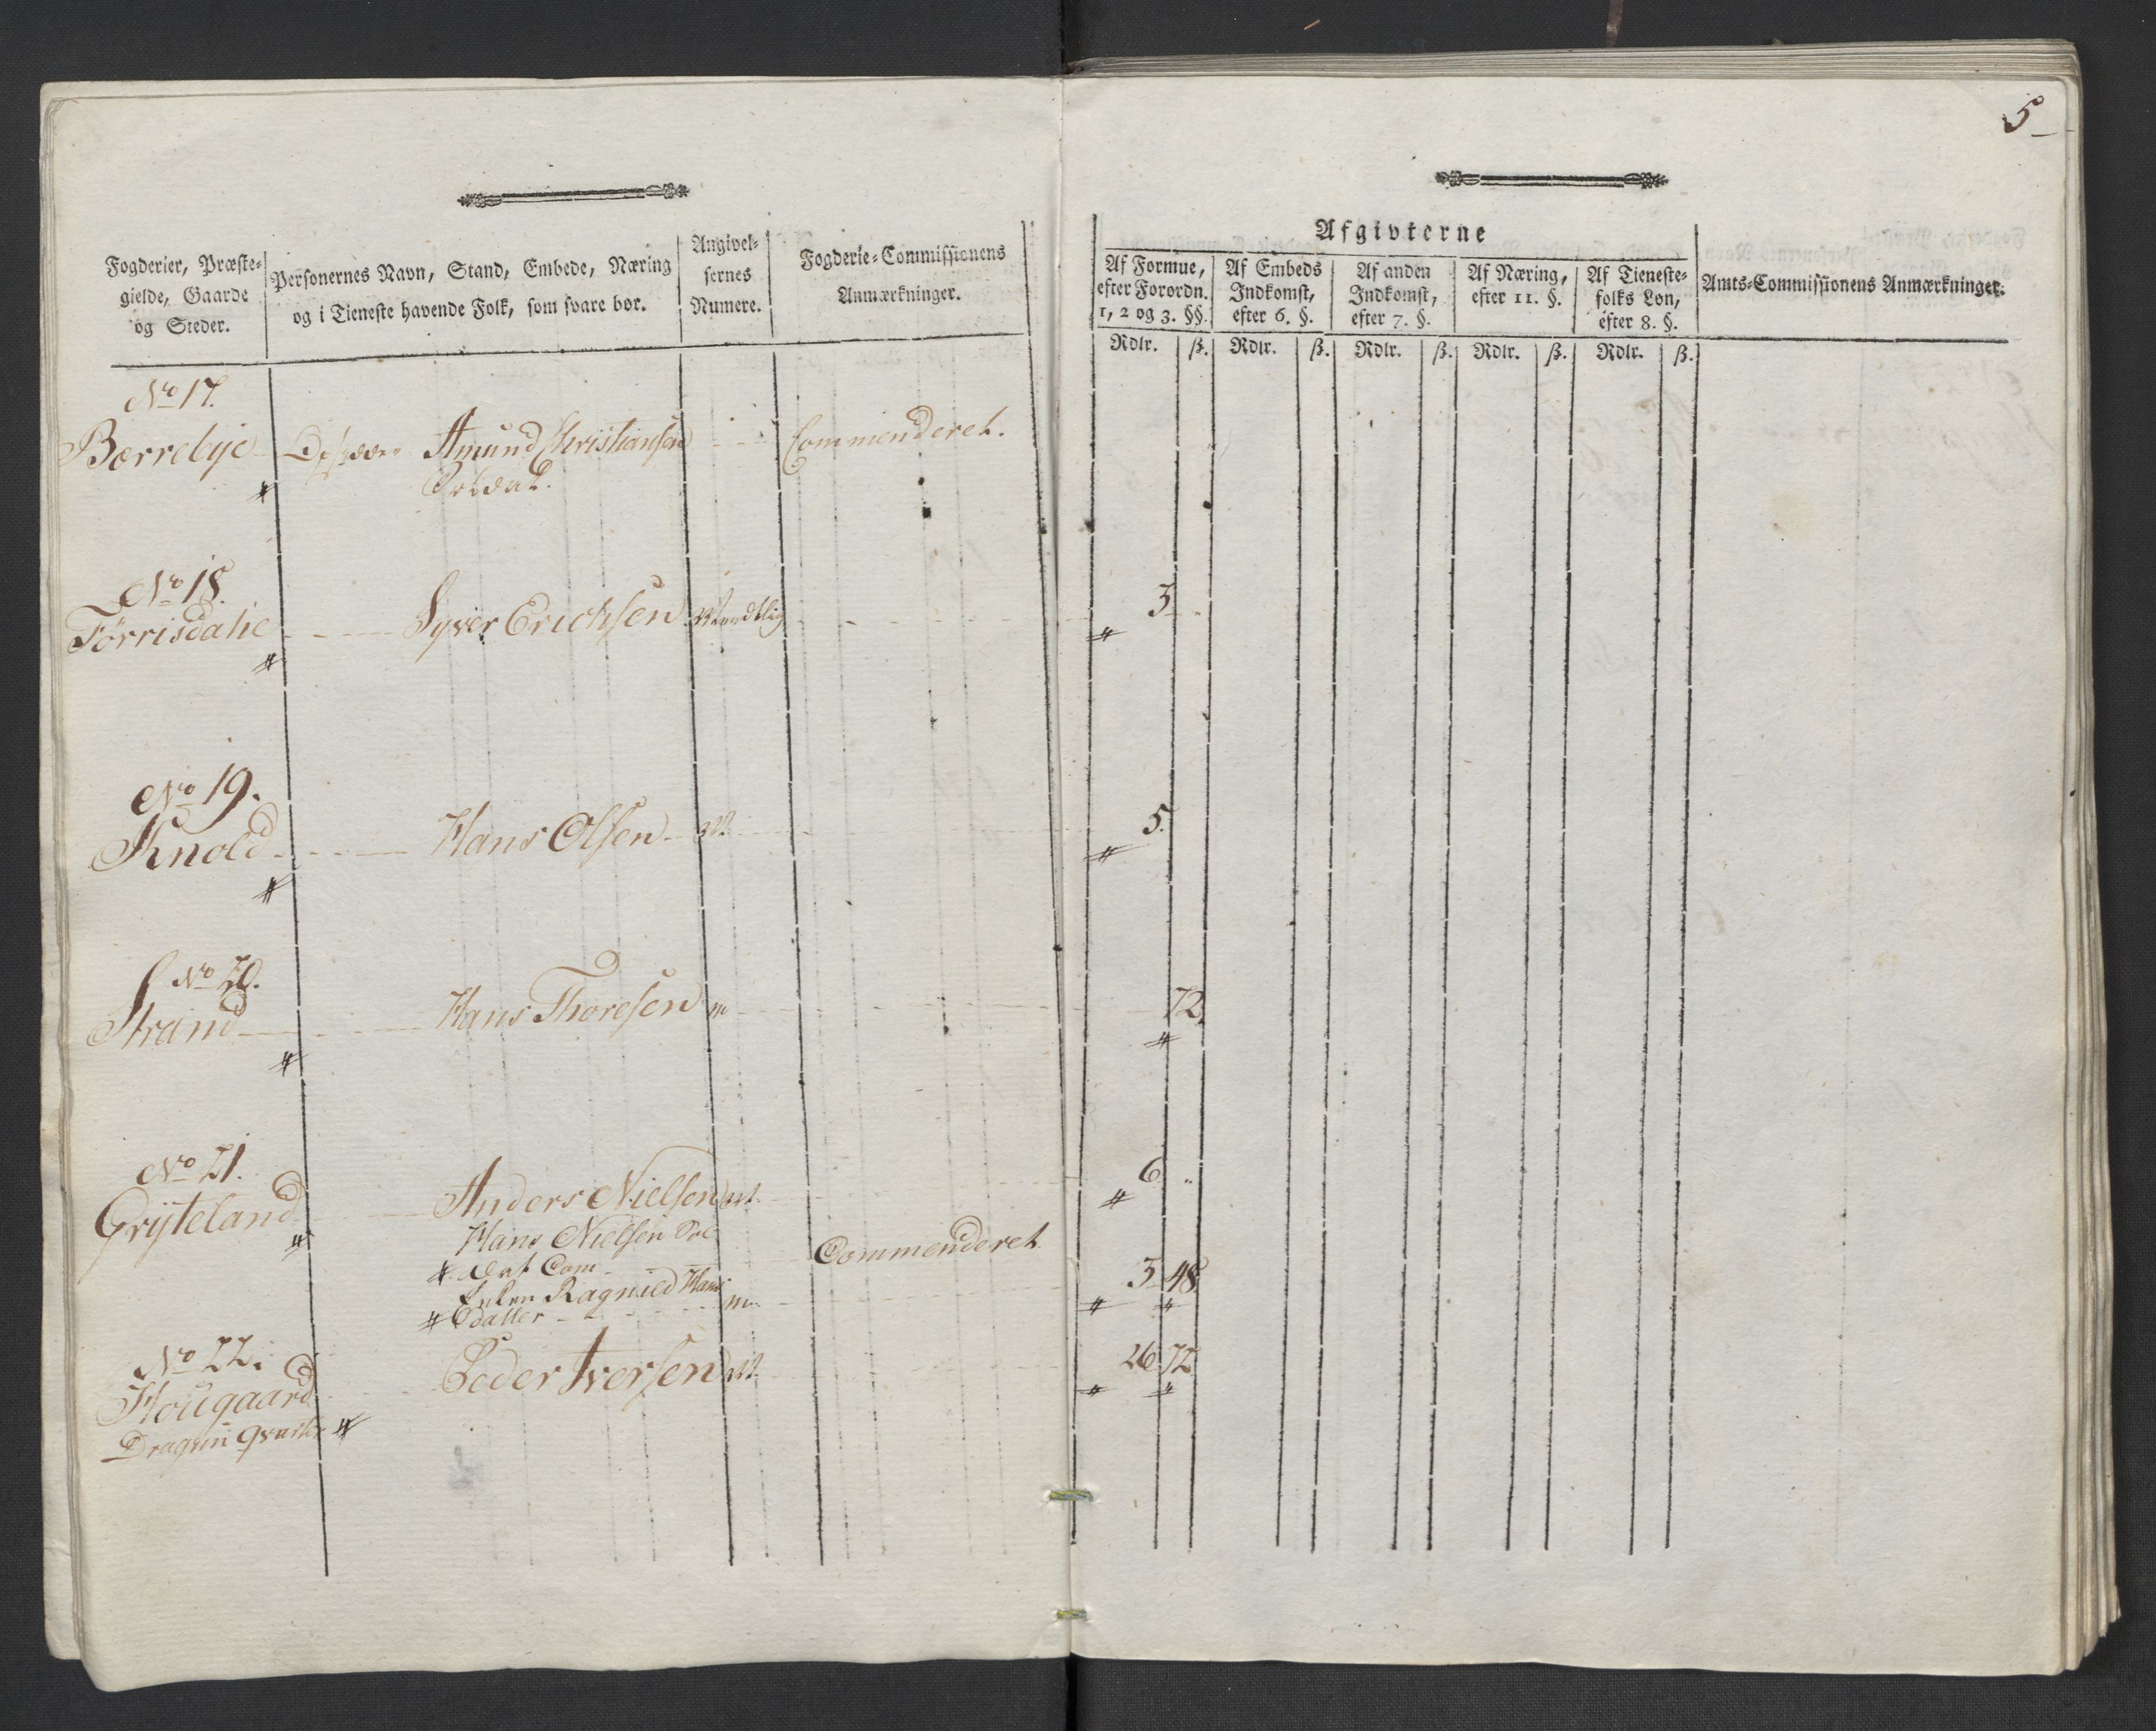 5
Fogderier, Præste-
gielde, Gaarde
og Steder.
Personernes Navn, Stand, Embede, Næring
og i Tieneste havende Folk, som svare bør.
Angivel-
sernes
Numere.
Fogderie-Commissionens
Anmærkninger.
Afgivterne
Af Formue,
efter Forordn.
1, 2 og 3. §§.
Af Embeds
Indkomst,
efter 6. §.
Af anden
Indkomst,
efter 7. §.
Af Næring,
efter 11. §.
Af Tieneste-
folks Løn,
efter 8. §.
Amts-Commissionens Anmærkninger.
Rdlr. ß. Rdlr. ß. Rdlr. ß. Rdlr. ß. Rdlr. ß.
No 17.
Børrebye Amund Christiansen Commenderet.
Soldat.
No 18.
Tørrisdahe Syver Erichsen Mundtlig 3 "
No 19.
Knold Hans Olsen M 5.
No 20.
Strand Hans Thoresen m 72.
No 21.
Gryteland Anders Nielsen M. 6 "
Hans Nielsen Sol
dat Com Commenderet
Enken Ragnild Hans
datter m 3 48
No 22.
Hougaard Peder Iversen M. 26 72
Dragun Qvarter